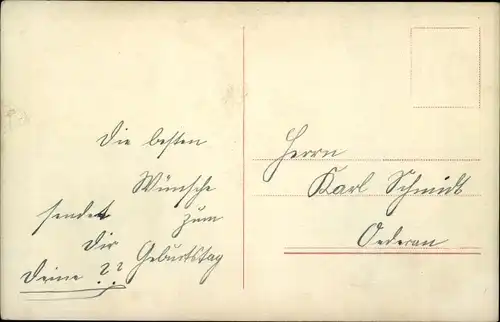 Die besten
Wünsche
sendet zum
Dir Geburtstag
Deine ??
Herrn
Karl Schmidt
Oederan